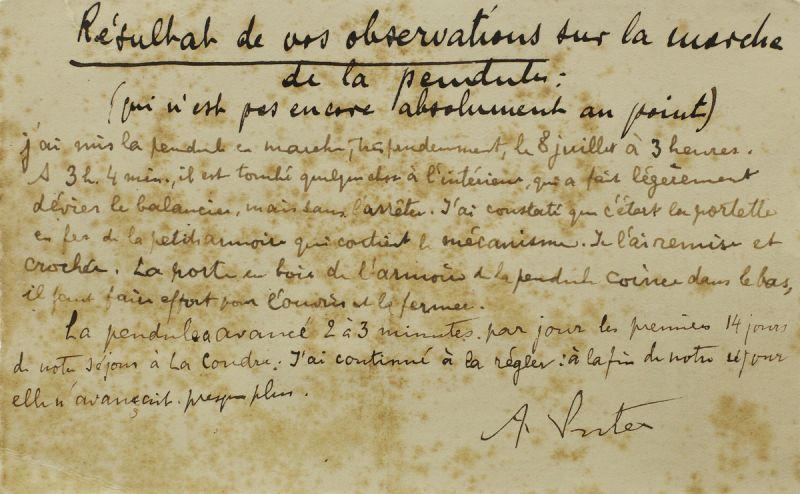 Résultat de vos observations sur la marche
de la pendule :
(qui n'est pas encore absolument au point)
j'ai mis la pendule en marche, très prudemment, le 8 juillet à 3 heures.
A 3 h. 4 min., il est tombé quelque chose à l'intérieur, qui a fait légèrement
dévier le balancier, mais sans l'arrêter. J'ai constaté que c'était la portette
en fer de la petite armoire qui contient le mécanisme. Je l'ai remise et
crochée. La porte en bois de l'armoire de la pendule coince dans le bas,
il faut faire effort pour l'ouvrir et la fermer.
La pendule a avancé 2 à 3 minutes par jour les premiers 14 jours
de notre séjour à La Coudre. J'ai continué à la régler : à la fin de notre séjour
elle n'avançait presque plus.
A